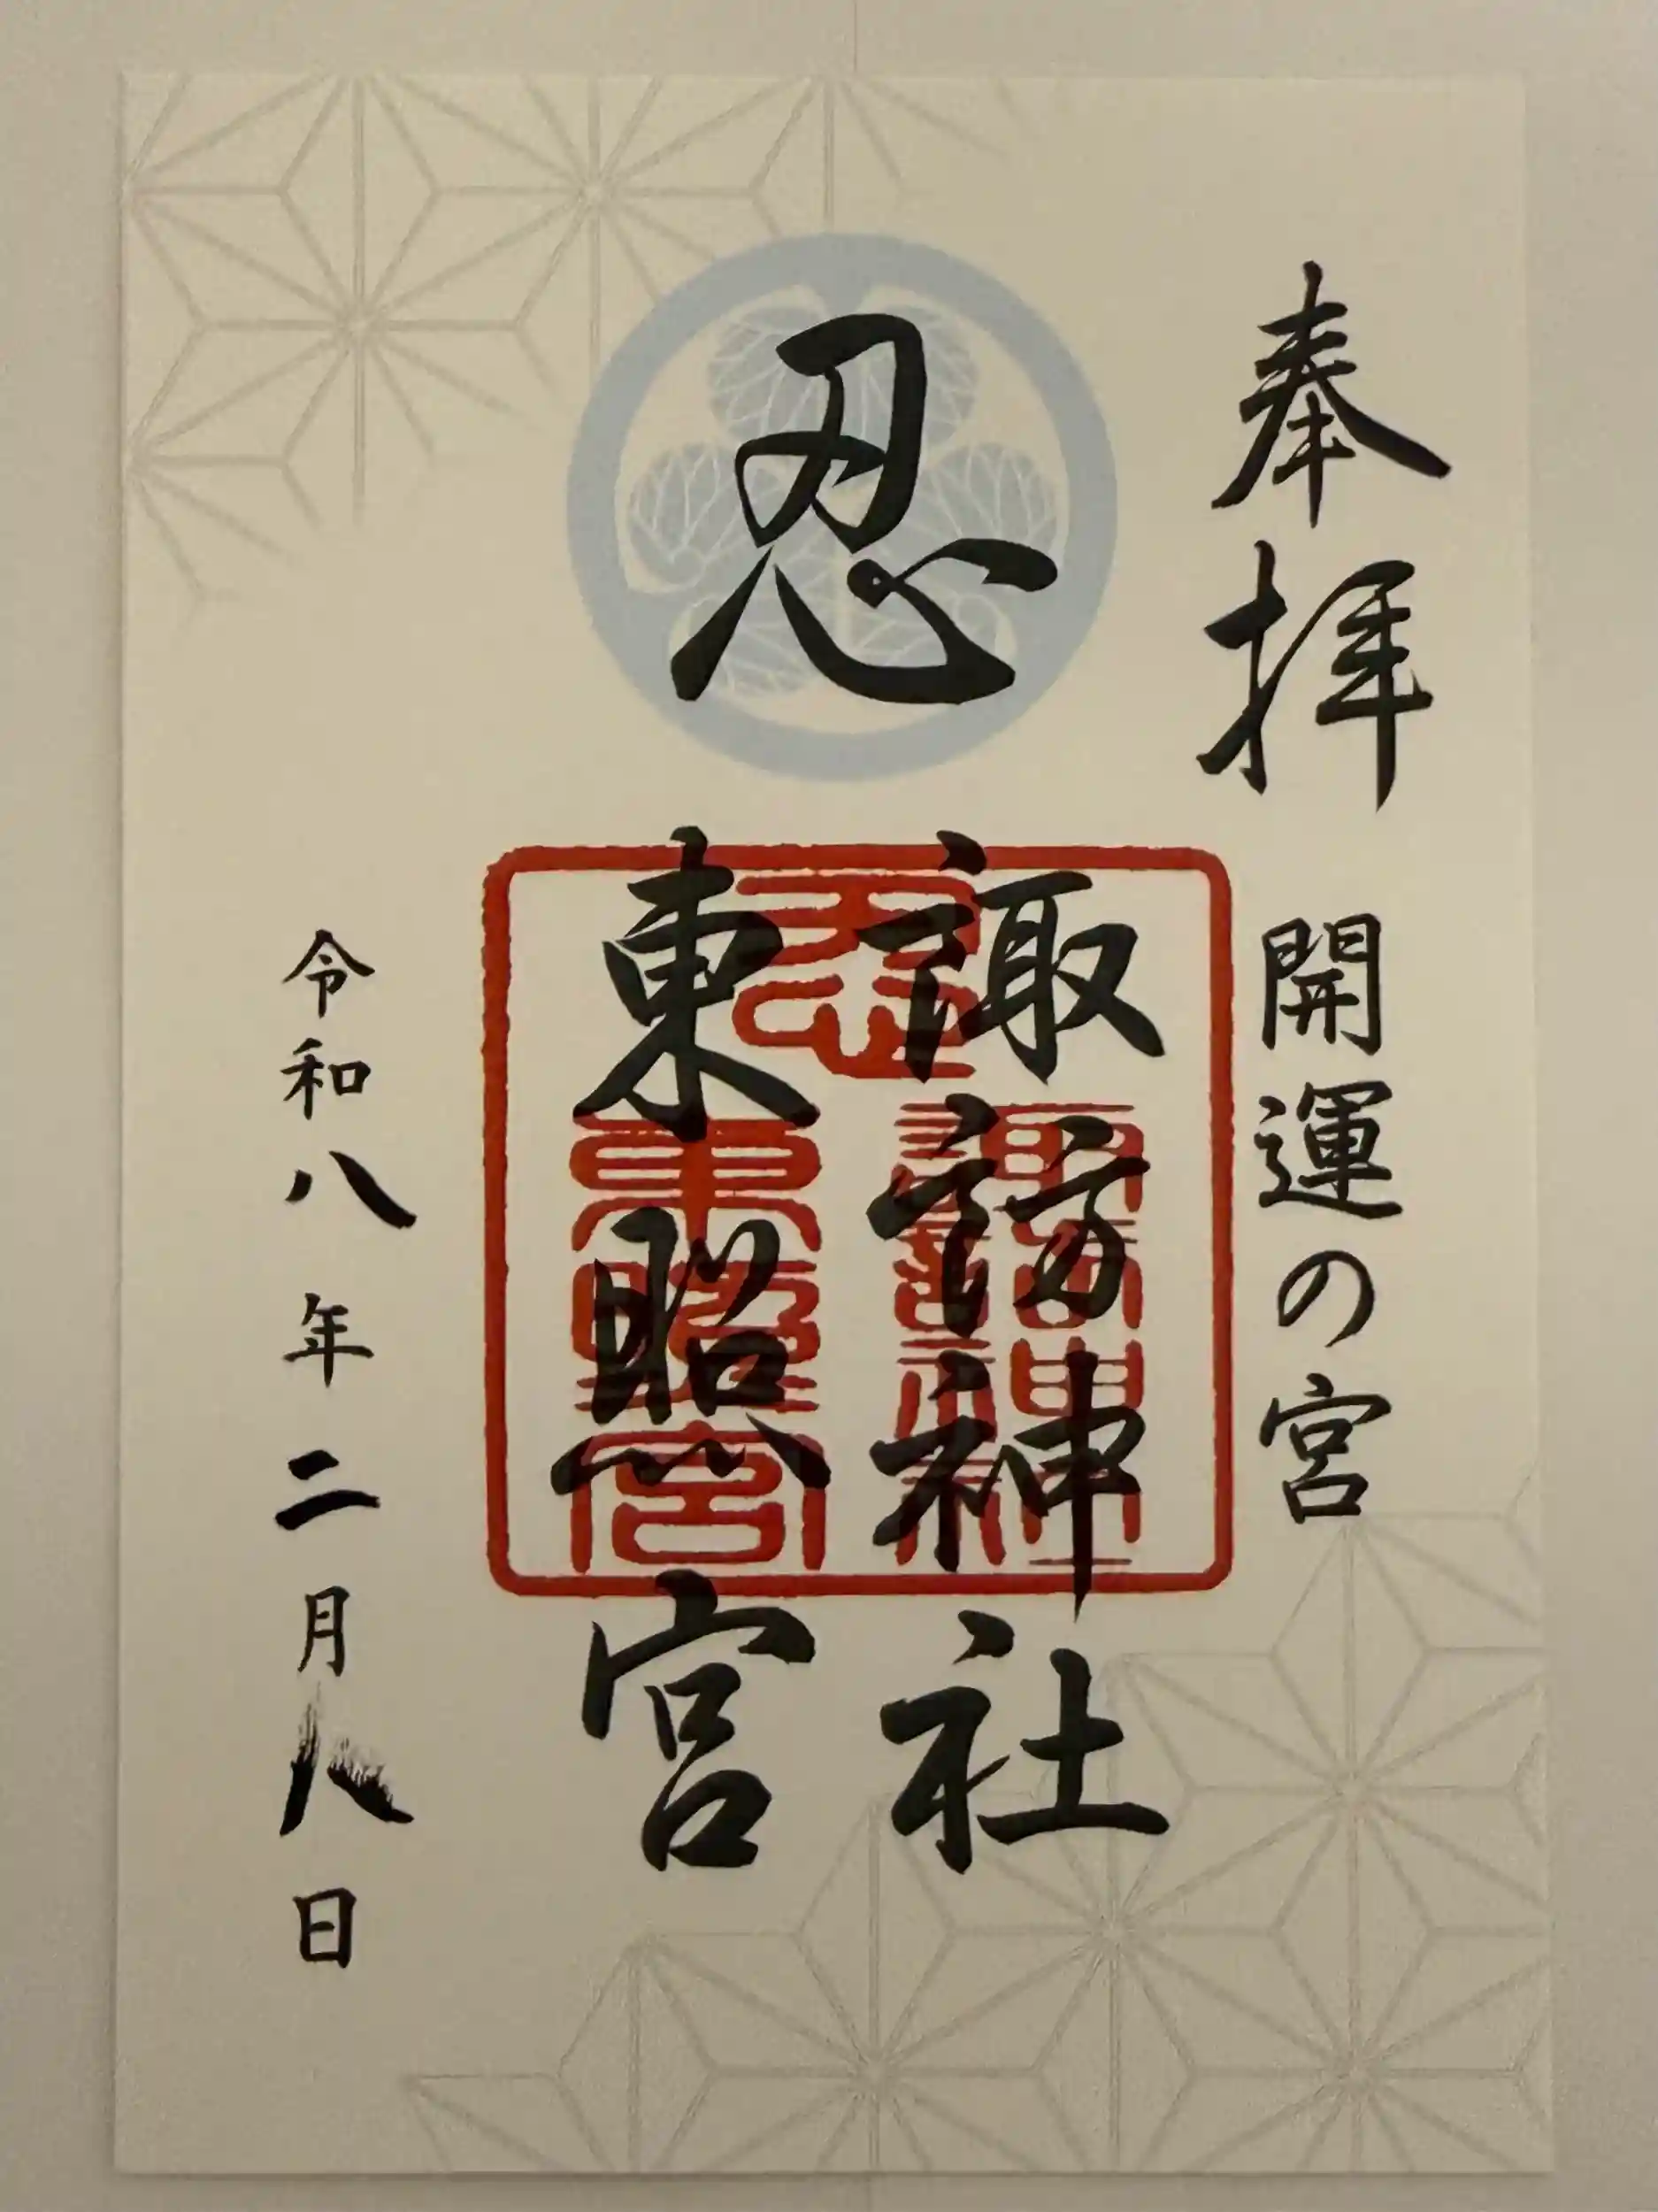 奉拝
開運の宮
忍
諏訪神社
東照宮
忍
諏訪神社
東照宮
令和八年二月八日